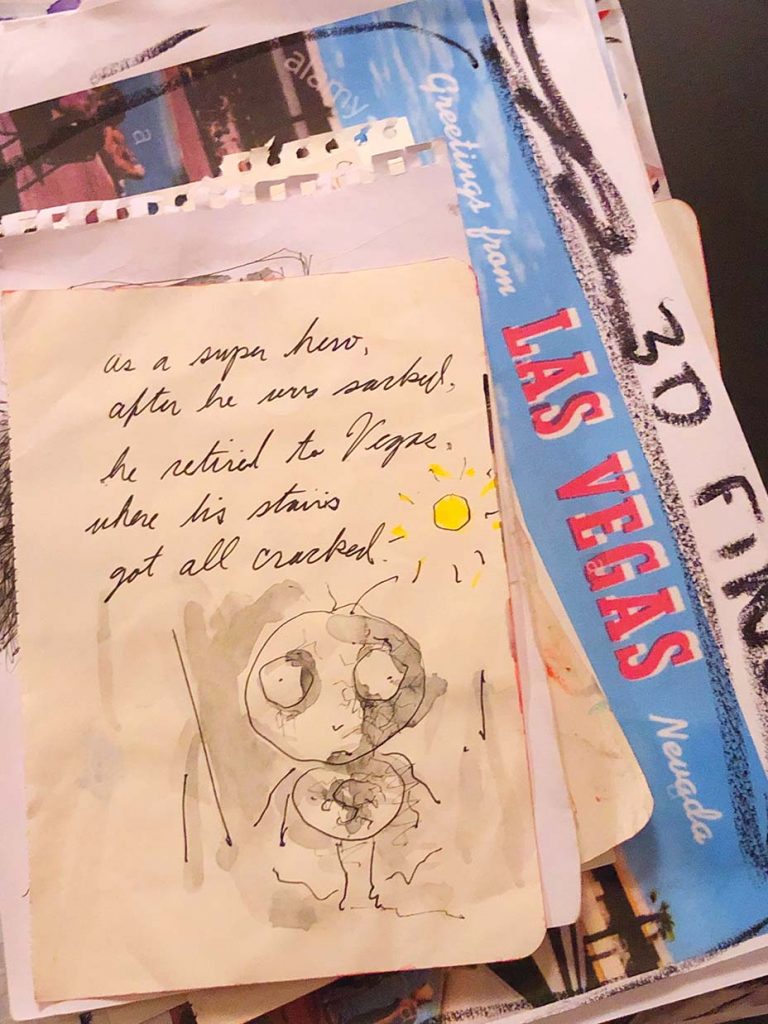 alamy
a
Greetings from
LAS VEGAS
Nevada
3D FIN
as a super hero,
after he was sacked,
he retired to Vegas,
where his stains
got all cracked.